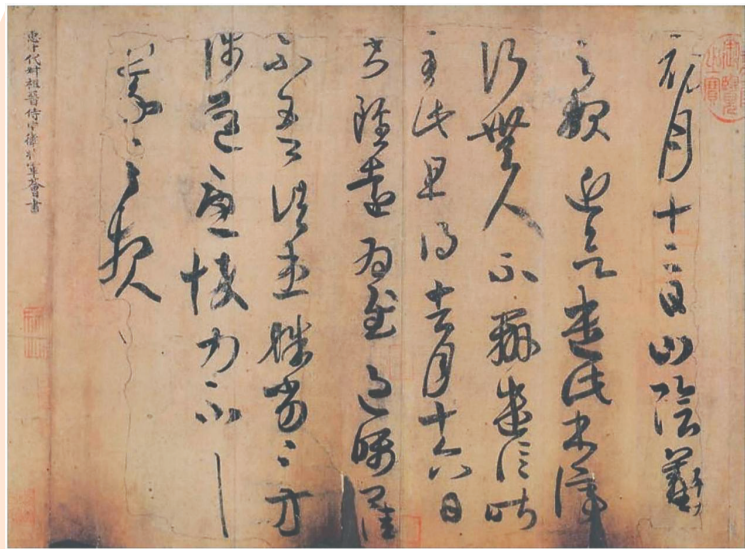 初月十二日山陰羲
之報近欲遣此書停
行無人不辦遣信昨
至此且得去月十六日
書雖遠為慰過囑卿佳
不吾諸患殊劣殊劣方
涉道憂悴力不具
羲之報
十代祖晉侍中衛將軍薈書